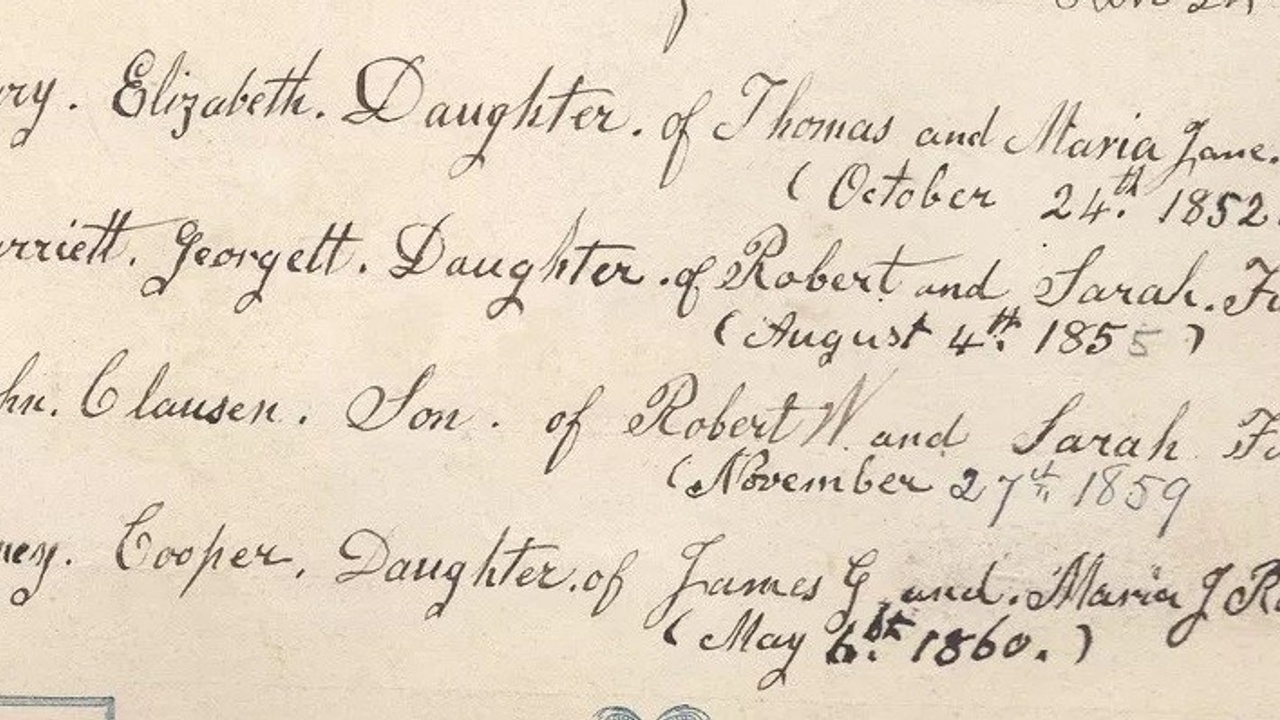 Elizabeth. Daughter. of Thomas and Maria Jane.
( October 24.th 1852.
Georgett. Daughter. of Robert and Sarah.
( August 4.th 1855 )
Clausen. Son. of Robert W. and Sarah
( November 27th 1859
Cooper. Daughter. of James G and. Maria J
( May 1860. )